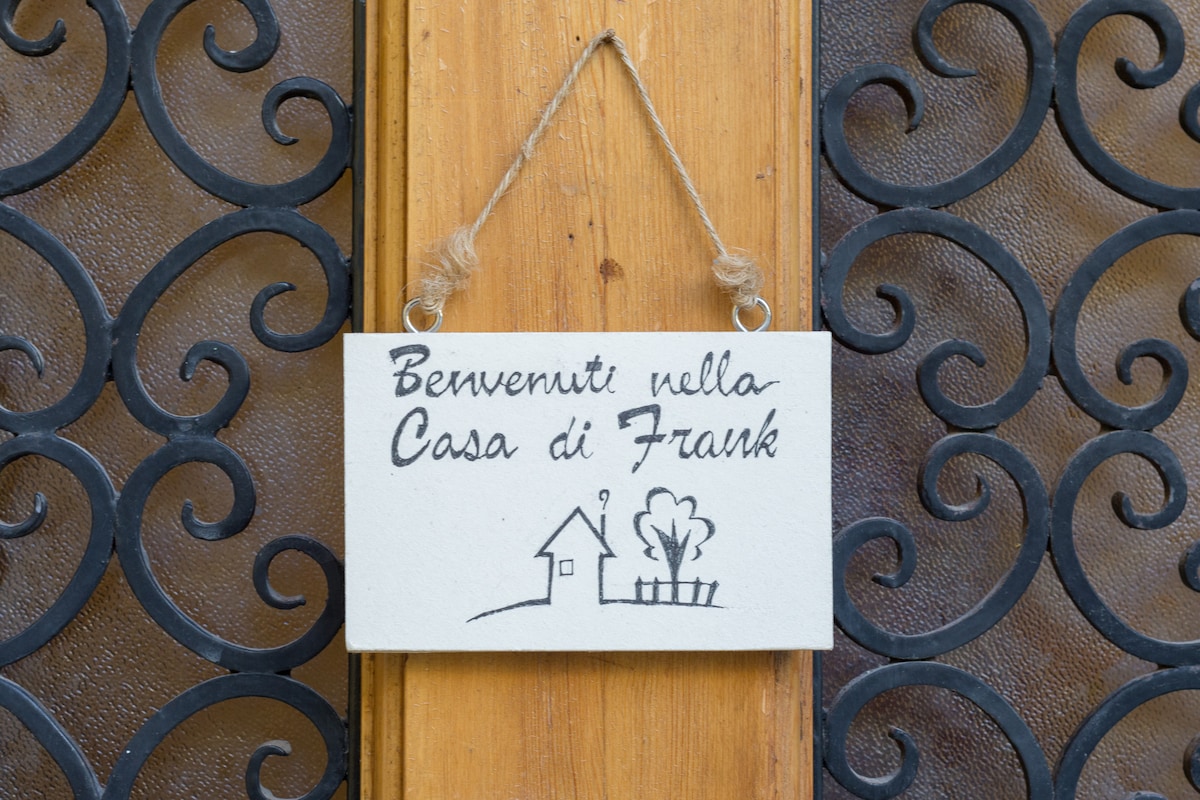 Benvenuti nella
Casa di Frank